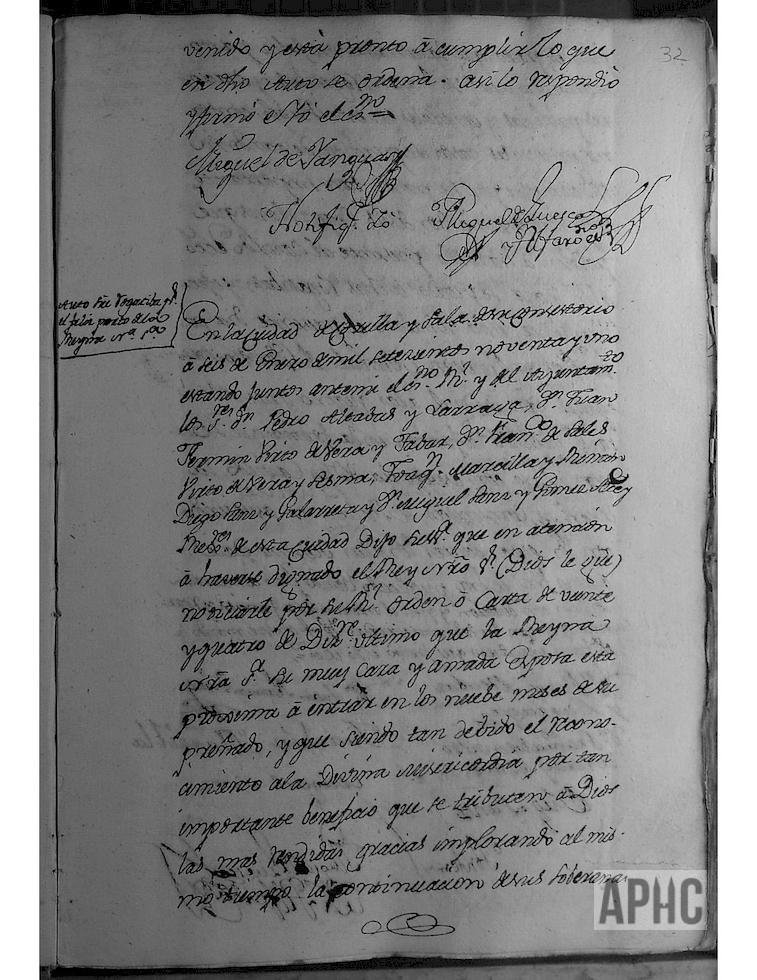 32
venido y está pronto â cumplir lo que
en dho Auto se ordena. asi lo respondió
y firmó el esno
Miguel de Yanguas
Notifiqdo Miguel de Huesca
y Alfaro
Auto sre Rogativa pr
el feliz parto de la
Reyna nra sra
En la Ciudad de Corella y Sala de su Consistorio
â seis de Enero de mil setecientos noventa y uno
estando juntos ante mi el esno Rl y del Ayuntamto
los Sres Dn Pedro Alcabas y Larraya, Dn Juan
Fermin Virto de Vera y Tabar, Dn Franco de Sales
Virto de Vera y Lesma, Joaqn Marcilla y
Diego Sanz y Galarreta y Dn Miguel Sanz y Gomez
Rexres de esta Ciudad Dijo su sria que en atencion
â haverse dignado el Rey nro Sr (Dios le gue)
noticiarle por su Rl orden ó Carta de veinte
y quatro de Dizre ultimo que la Reyna
nra Sra su muy Cara y Amada Esposa está
proxima â entrar en los nuebe meses de su
preñado, y que siendo tan debido el recono-
cimiento ala Divina misericordia por tan
importante beneficio que se tributen â Dios
las mas rendidas gracias implorando al mis-
mo tiempo la continuacion de sus soberanas
APHC